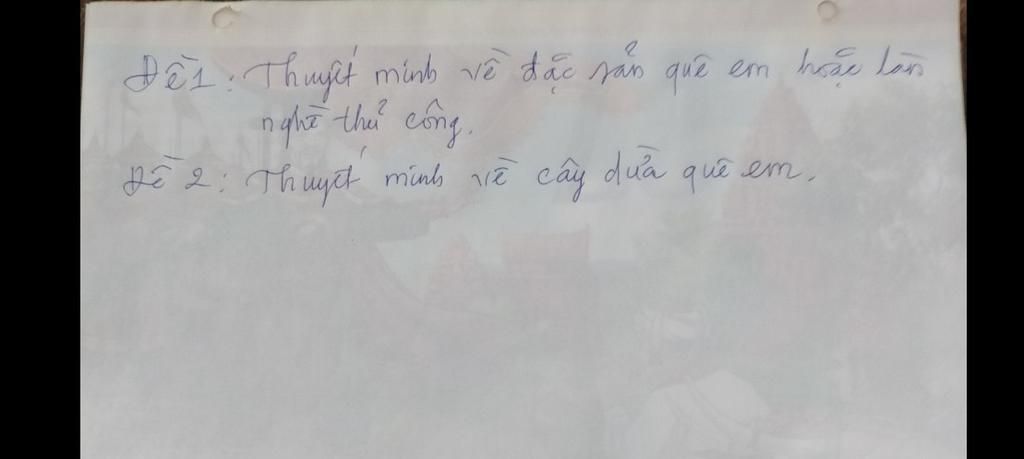 Đề 1: Thuyết minh về đặc sản quê em hoặc làn
nghề thủ công.
Đề 2: Thuyết minh về cây dừa quê em.